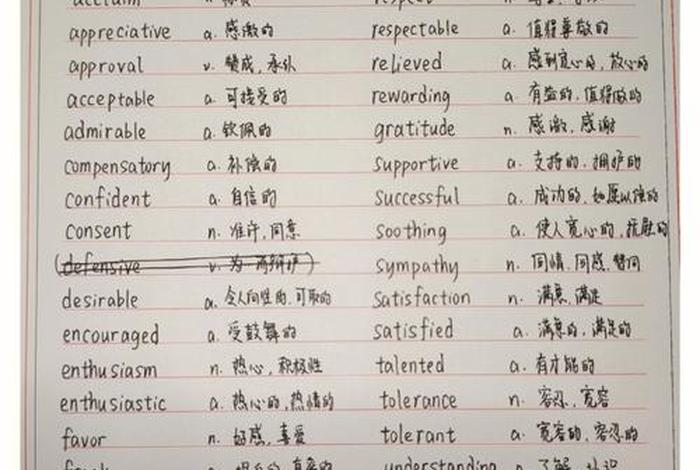 acclaim
appreciative a. 感激的 respectable a. 值得尊敬的
approval v. 赞成,承认 relieved a. 感到宽心的,放心的
acceptable a. 可接受的 rewarding a. 有益的,值得做的
admirable a. 钦佩的 gratitude n. 感激,感谢
compensatory a. 补偿的 supportive a. 支持的,拥护的
confident a. 自信的 successful a. 成功的,如愿以偿的
consent n. 准许,同意 soothing a. 使人宽心的,抚慰的
(defensive v. 为…而辩护) sympathy n. 同情,同感,赞同
desirable a. 令人向往的,可取的 satisfaction n. 满意,满足
encouraged a. 受鼓舞的 satisfied a. 满意的,满足的
enthusiasm n. 热心,积极性 talented a. 有才能的
enthusiastic a. 热心的,热情的 tolerance n. 容忍,宽容
favor n. 好感,喜爱 tolerant a. 宽容的,容忍的
understanding n. 了解,认识